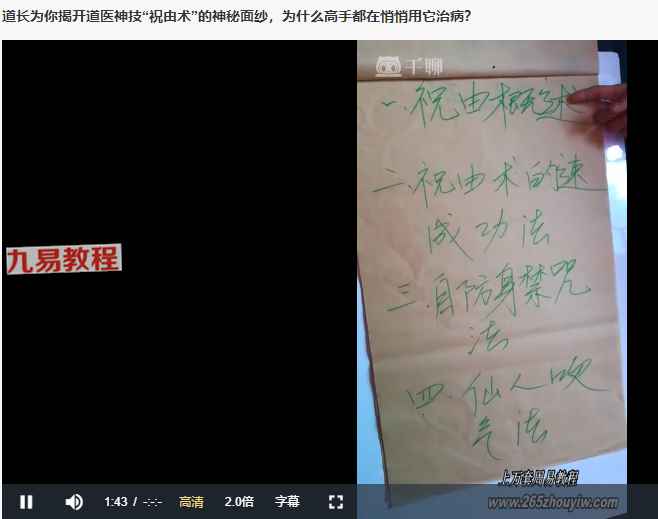 道长为你揭开道医神技“祝由术”的神秘面纱，为什么高手都在悄悄用它治病？
千聊
一、祝由概述
二、祝由术的速
成功法
九易教程
三、自防身禁咒
法
四、仙人吹
气法
上万套周易教程
www.265zhouyiw.com
1:43 / -:-:-
高清
2.0倍
字幕